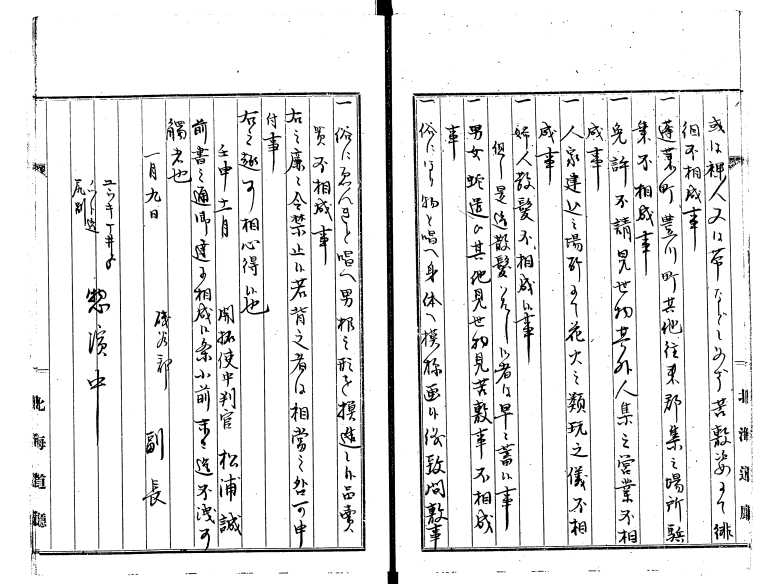 或は裸人又は帯なしもめす苦敷姿にて徘
徊不相成事
一 蓬莱町豊川町其他往来群集之場所
業不相成事
一 免許不請見世物其外人集之営業不相
成事
一 人家建込之場所にて花火之類玩之儀不相
成事
一 婦人散髪不相成候事
但是迄散髪いたし候者は早々蓄候事
一 男女蛇遣ひ其他見世物見苦敷事不相成
事
一 俗にほり物と唱へ身体へ模様画候儀致間敷事
一 俗にゑんぎと唱へ男根之形を模造し候品売
買不相成事
右之廉々令禁止候若背之者は相當之咎可申
付事
右之趣可相心得候也
壬申十一月 開拓使中判官 松浦誠
前書之通御達相成候条小前末々迄不洩可
觸者也
一月九日 磯谷郡 副長
尻別
惣濱中
北海道廳
北海道廳